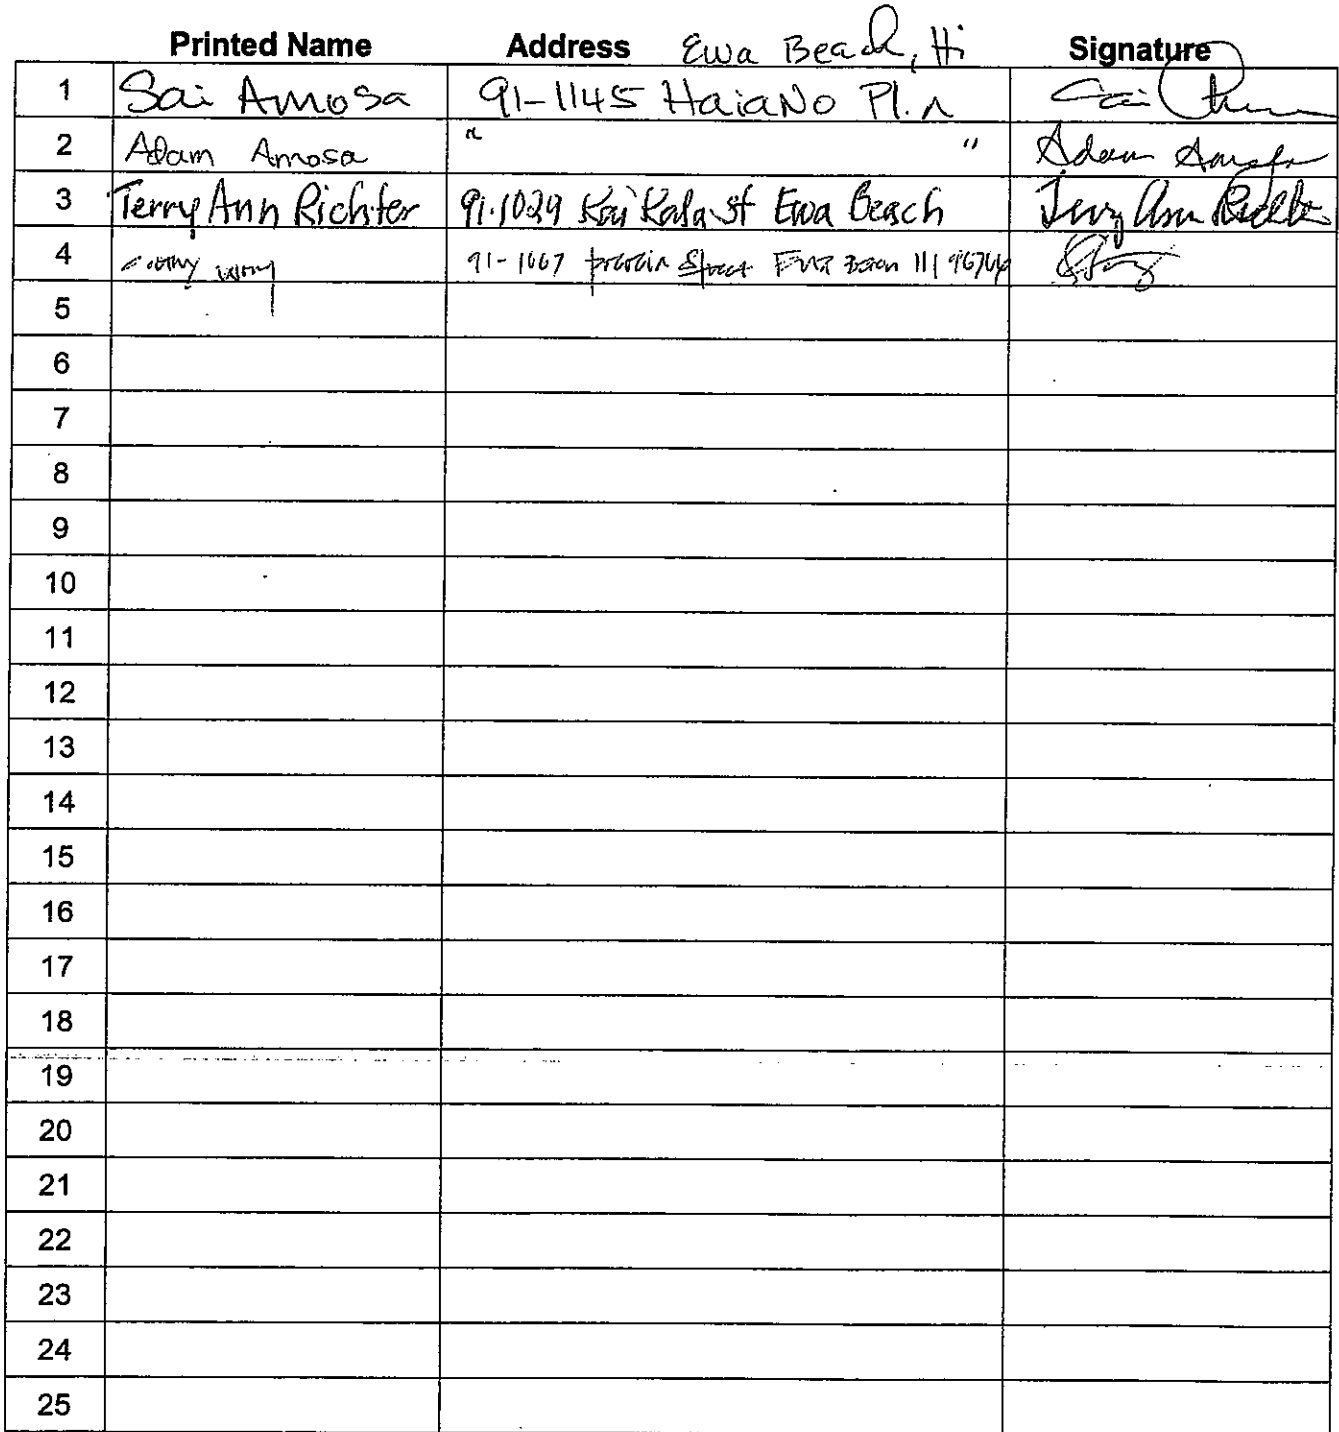 Printed Name Address Ewa Beach, Hi Signature
1 Sai Amosa 91-1145 HaiaNo Pl.
2 Adam Amosa " " Adam Amosa
3 Terry Ann Richter 91-1029 Kai Kala St Ewa Beach Terry Ann Richter
4 91-1667 Street Ewa Beach HI 96706
5
6
7
8
9
10
11
12
13
14
15
16
17
18
19
20
21
22
23
24
25